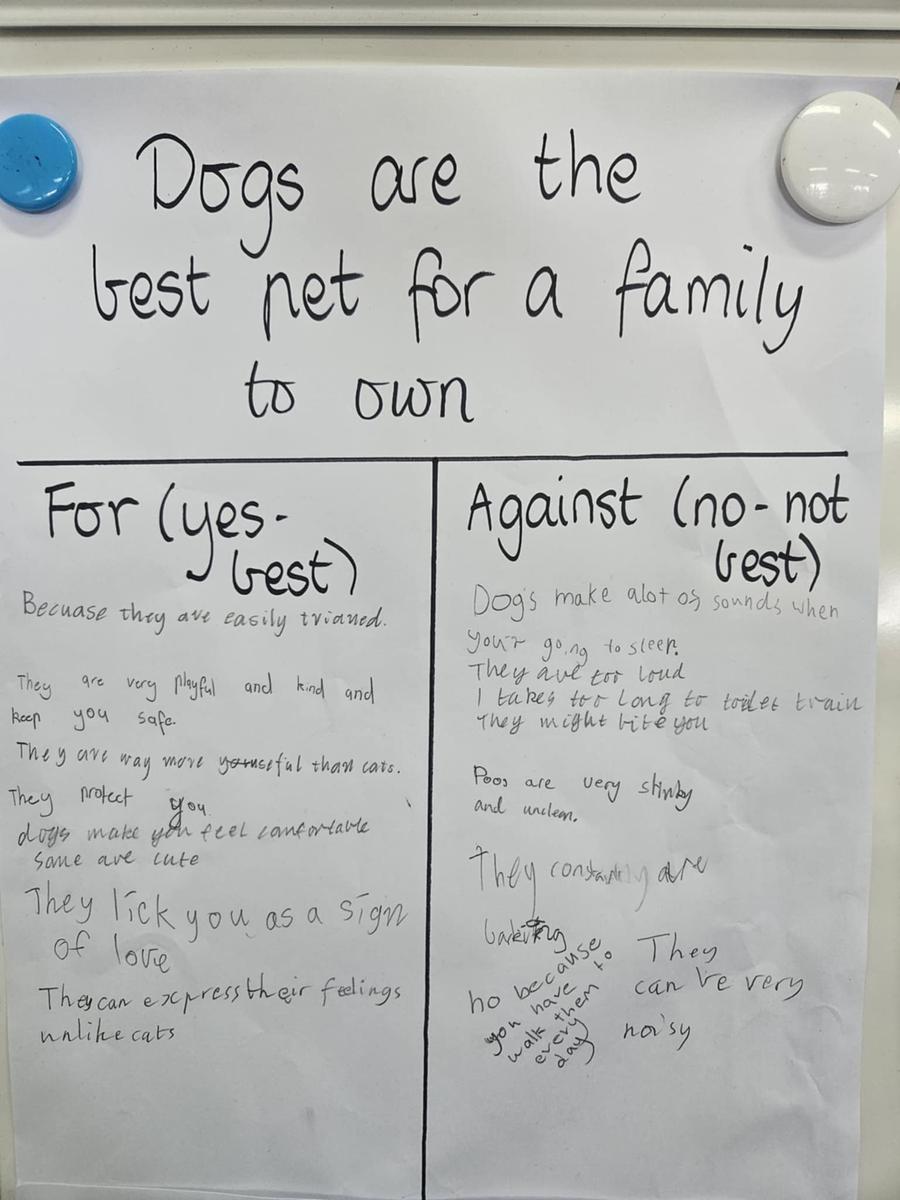 Dogs are the
best pet for a family
to own
For (yes-
best)
Becuase they are easily trianed.
They are very playful and kind and
keep you safe.
They are way more useful than cats.
They protect you.
dogs make you feel comfortable
Some are cute
They lick you as a sign
of love
They can express their feelings
unlike cats
Against (no - not
best)
Dogs make alot of sounds when
your going to sleep.
They are too loud
I takes too long to toilet train
They might bite you
Poos are very stinky
and unclean.
They constantly are
barking
no because
you have to
walk them
every
day
They
can be very
noisy